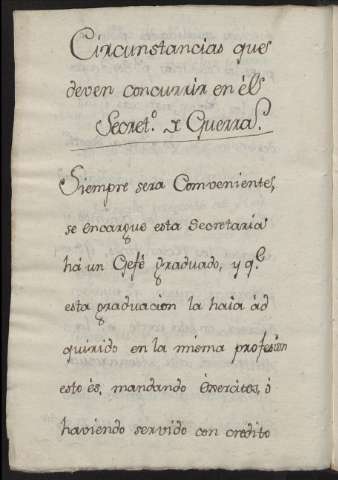 Circunstancias que
deven concurrir en él
Secret.º de Guerra.
Siempre sera Conveniente,
se encargue esta Secretaría
há un Gefé graduado, y q.e
esta graduacion la haia ád
quirido en la misma profesion
esto és, mandando éxercitos, ó
haviendo servido con credito